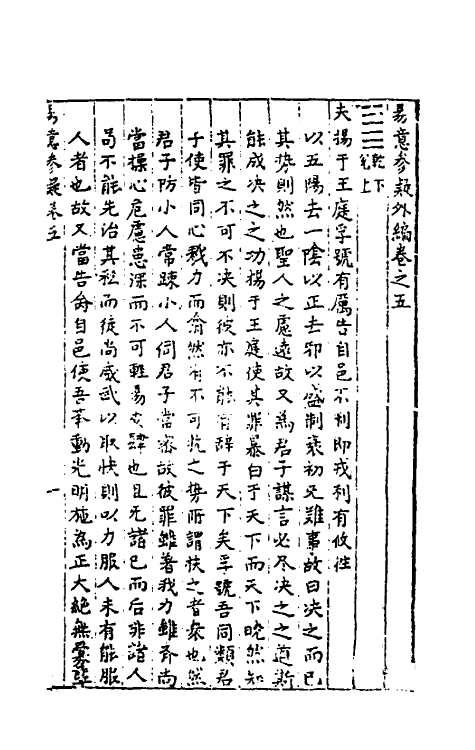 易意參疑外編卷之五
䷪乾下兌上
夬揚于王庭孚號有厲告自邑不利即戎利有攸往
以五陽去一陰以正去邪以盛制衰初无難事故曰決之而已
其势則然也聖人之慮遠故又為君子謀言必尽决之之道斯
能成决之之功揚于王庭使其罪暴白于天下而天下曉然知
其罪之不可不决則彼亦不能有辞于天下矣孚號吾同類君
子使皆同心戮力而翕然有不可抗之势所謂扶之者衆也然
君子防小人常踈小人伺君子常密故彼罪雖著我力雖齐尚
當操心危慮患深而不可輕易安肆也且无諸己而后非諸人
苟不能先治其私而徒尚威武以取快則以力服人未有能服
人者也故又當告命自邑使吾举動光明施為正大絶無
易意參疑卷五
一